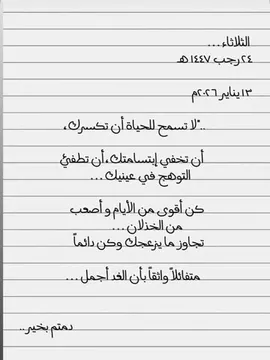 الثلاثاء ...
٢٤ رجب ١٤٤٧ هـ
١٣ يناير ٢٠٢٦م
.."لا تسمح للحياة أن تكسرك،
أن تخفي إبتسامتك، أن تطفئ
التوهج في عينيك ...
كن أقوى من الأيام و أصعب
من الخذلان ...
تجاوز ما يزعجك وكن دائماً
متفائلاً واثقاً بأن الغد أجمل ...
دمتم بخير..